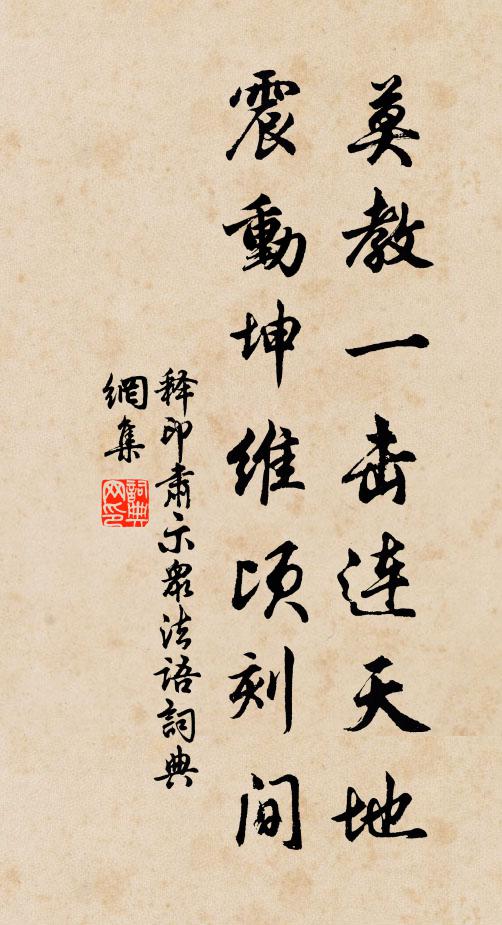 莫教一击连天地
震動坤维顷刻间
释印肃示眾法语詞典
網集
詞典
网印